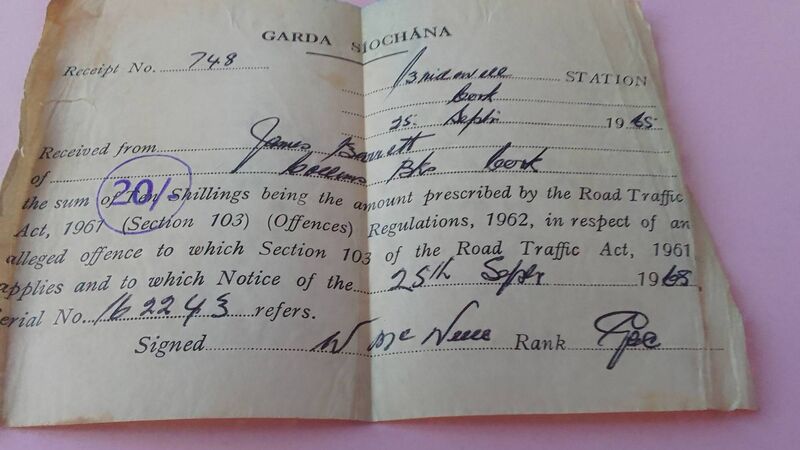 GARDA SÍOCHÁNA
Receipt No. 748
Bridewell STATION
Cork
25 Septr 1965
Received from James Barrett
of Collins Bks Cork
the sum of Ten Shillings being the amount prescribed by the Road Traffic
20/-
Act, 1961 (Section 103) (Offences) Regulations, 1962, in respect of an
alleged offence to which Section 103 of the Road Traffic Act, 1961
applies and to which Notice of the 25th Septr 1965
erial No. 162243 refers.
Signed W Mc Rank